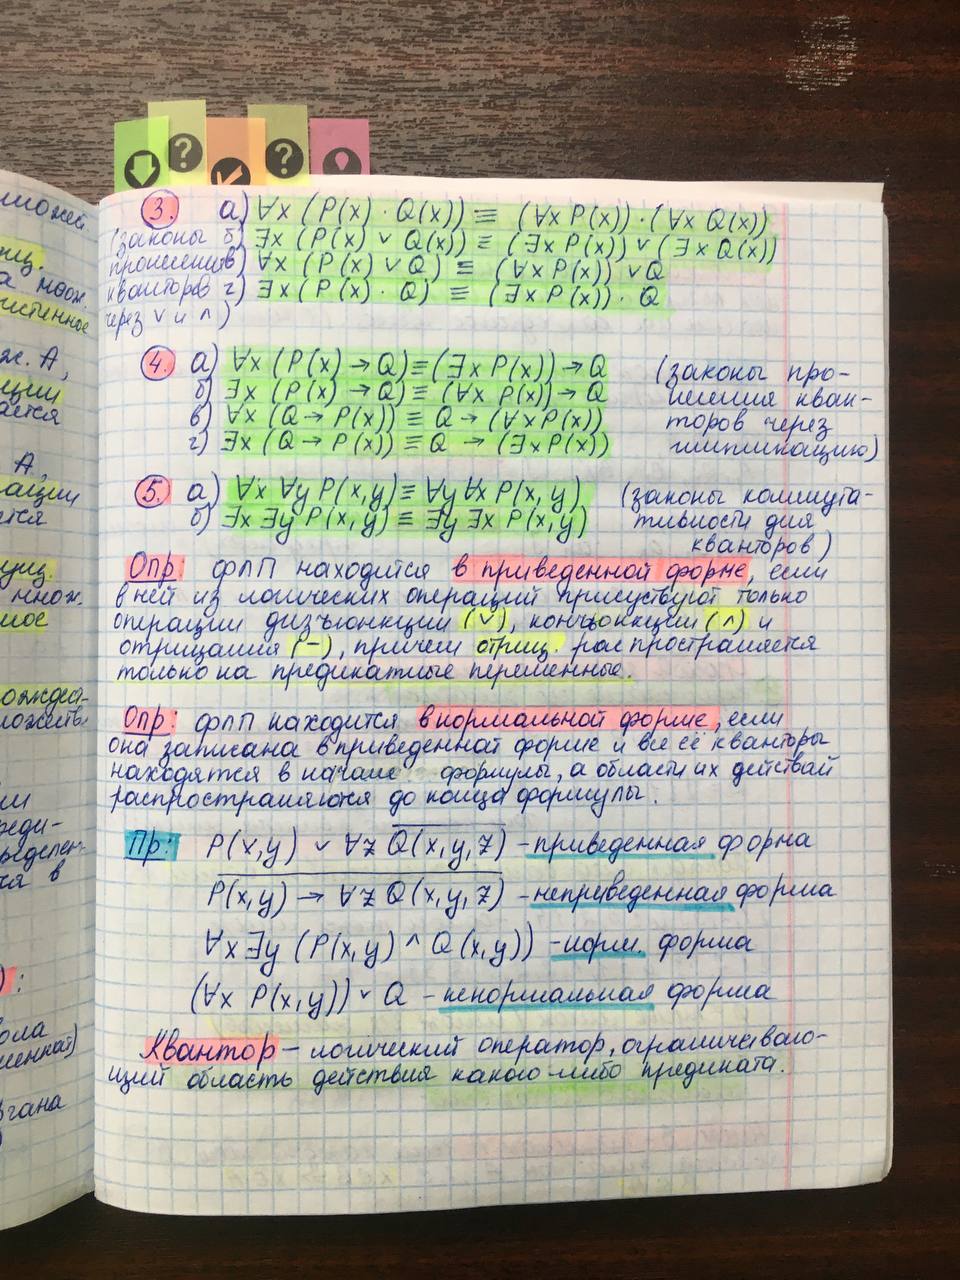 можей
3. а) ∀x (P(x) · Q(x)) ≡ (∀x P(x)) · (∀x Q(x))
(законы б) ∃x (P(x) ∨ Q(x)) ≡ (∃x P(x)) ∨ (∃x Q(x))
пронесения в) ∀x (P(x) ∨ Q) ≡ (∀x P(x)) ∨ Q
кванторов г) ∃x (P(x) · Q) ≡ (∃x P(x)) · Q
через ∨ и ∧)
4. а) ∀x (P(x) → Q) ≡ (∃x P(x)) → Q (законы про-
б) ∃x (P(x) → Q) ≡ (∀x P(x)) → Q несения кван-
в) ∀x (Q → P(x)) ≡ Q → (∀x P(x)) торов через
г) ∃x (Q → P(x)) ≡ Q → (∃x P(x)) импликацию)
5. а) ∀x ∀y P(x,y) ≡ ∀y ∀x P(x,y) (законы коммута-
б) ∃x ∃y P(x,y) ≡ ∃y ∃x P(x,y) тивности для
кванторов)
Опр: ФЛП находится в приведенной форме, если
в ней из логических операций присуствуют только
операции дизъюнкции (∨), конъюнкции (∧) и
отрицания (¯), причем отриц. распространяется
только на предикатные переменные.
Опр: ФЛП находится в нормальной форме, если
она записана в приведенной форме и все её кванторы
находятся в начале формулы, а области их действий
распространяются до конца формулы.
Пр: P(x,y) ∨ ∀z Q̅(̅x̅,̅y̅,̅z̅)̅ - приведенная форма
P̅(̅x̅,̅y̅)̅ ̅→̅ ̅∀̅z̅ ̅Q̅(̅x̅,̅y̅,̅z̅)̅ - неприведенная форма
∀x ∃y (P(x,y) ∧ Q(x,y)) - норм. форма
(∀x P(x,y)) ∨ Q - ненормальная форма
Квантор - логический оператор, ограничиваю-
щий область действия какого-либо предиката.